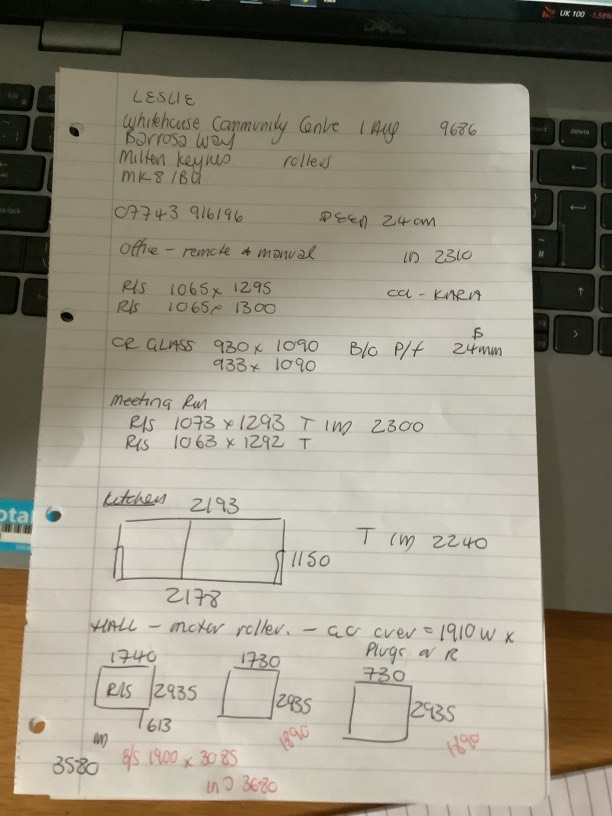 UK 100 -1.58%
LESLIE
Whitehouse Community Centre 1 Aug 9686
Barrosa Way
Milton Keynes rollers
MK8 1BU
07743 916196 DEEP 24cm
Office - remote + manual in 2310
R/S 1065 x 1295 col - KARA
R/S 1065 x 1300
OR GLASS 930 x 1090 B/O P/f 24mm
933 x 1090
Meeting Rm
R/S 1073 x 1293 T IM 2300
R/S 1063 x 1292 T
Kitchen 2193
1150 T IM 2240
2178
HALL - motor roller. - over = 1910 W x
Plugs R
1740 1730 730
R/S 2935 2935 2935
613
1890 1890
3580 B/S 1900 x 3085
3680